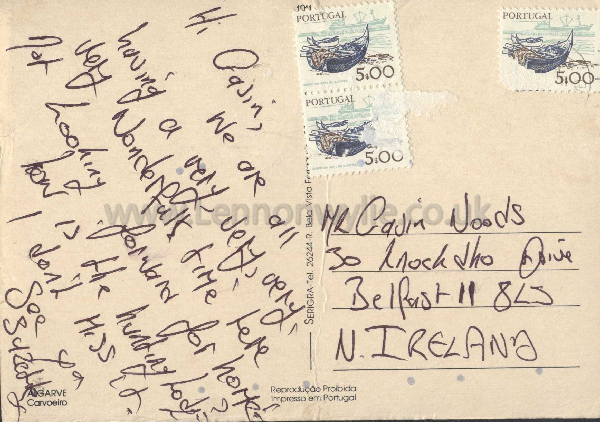 Hi Gavin,
We are all
having a very very very
very wonderful time here
Not looking forward for home
how is the hunting lodge?
I don't miss it.
See ya
PORTUGAL
5$00
PORTUGAL
5$00
PORTUGAL
5$00
www.Lennonwylie.co.uk
MR Gavin Woods
30 Knock Drive
Belfast 11 8LJ
N. IRELAND
SERIGRA-Tel. 26244-R. Bela Vista
ALGARVE
Carvoeiro
Reprodução Proibida
Impresso em Portugal